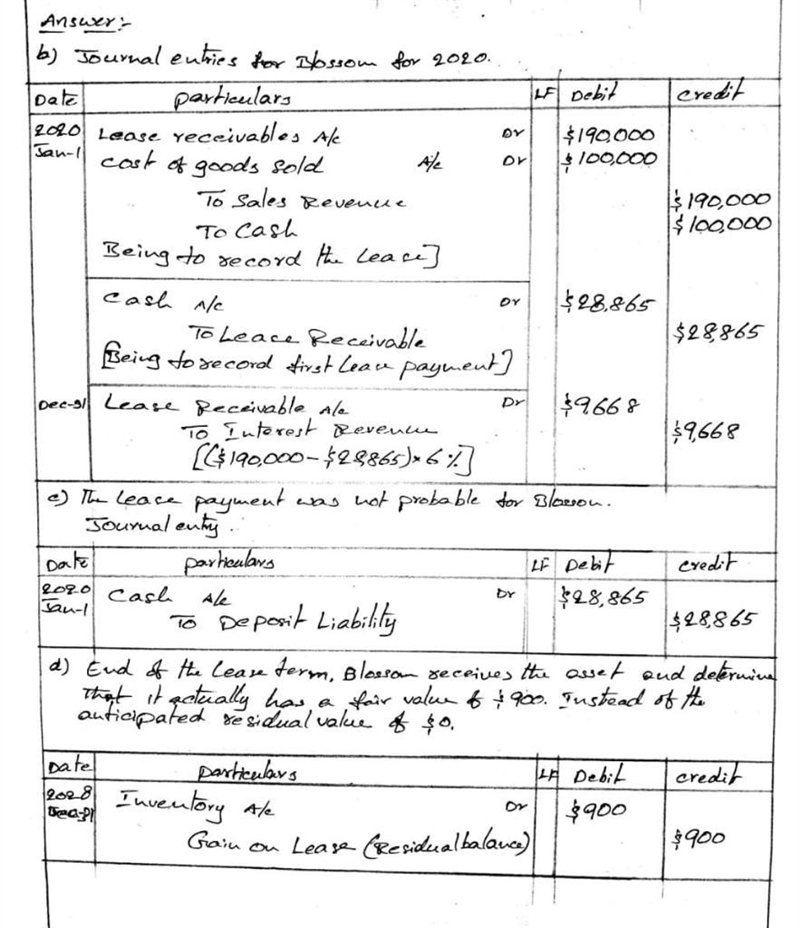 Answer:-
b) Journal entries for Blossom for 2020.
Date particulars LF Debit credit
2020 Lease receivables A/c Dr $190,000
Jan-1 cost of goods sold A/c Dr $100,000
To Sales Revenue $190,000
To Cash $100,000
Being to record the Lease]
Cash A/c Dr $28,865
To Lease Receivable $28,865
[Being to record first Lease payment]
Dec-31 Lease Receivable A/c Dr $9668
To Interest Revenue $9,668
[($190,000-$28,865)×6%]
c) The Lease payment was not probable for Blossom.
Journal entry.
Date particulars LF Debit credit
2020 Cash A/c Dr $28,865
Jan-1 To Deposit Liability $28,865
d) End of the Lease term, Blossom receives the asset and determine
that it actually has a fair value of $900. Instead of the
anticipated residual value of $0.
Date particulars LF Debit credit
2028 Inventory A/c Dr $900
Dec-31
Gain on Lease (Residual balance) $900